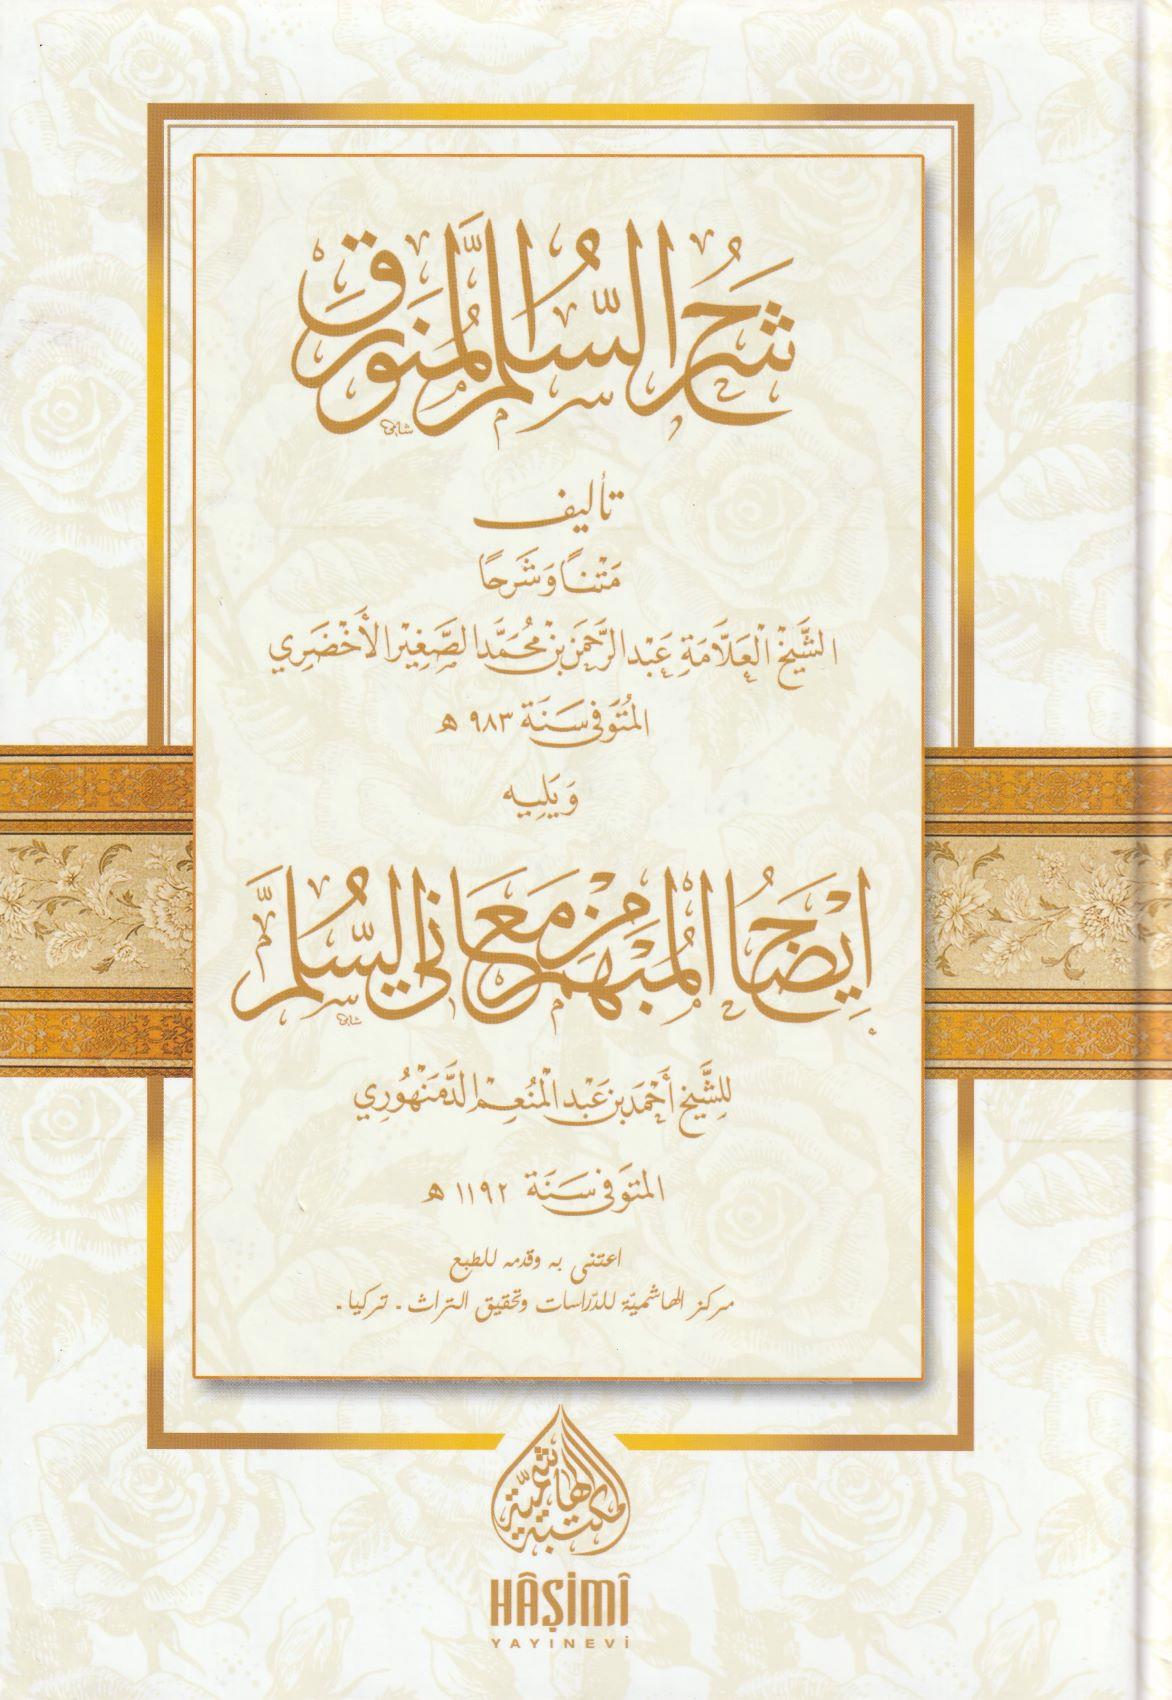 شَرْحُ السُّلَّمِ الْمُنَوْرَقِ
تأليف
مَتْنًا وَشَرحًا
الشَّيْخ الْعَلَّامَةِ عَبْد الرَّحْمَن بْن مُحَمَّد الصَّغِيْر الأَخْضَرِي
المُتَوَفى سَنَة ٩٨٣ هـ
وَيَلِيه
إِيْضَاحُ الْمُبْهَمِ مِنْ مَعَانِي السُّلَّمِ
لِلشَّيْخ أَحْمَد بْن عَبْد الْمُنْعِم الدَّمَنْهُورِي
المتوَفى سَنَة ١١٩٢ هـ
اعتنى به وقدمه للطبع
مركز الهاشميّة للدّراسات وتحقيق التراث - تركيا -
المكتبة الهاشميّة
HÂŞİMÎ
YAYINEVİ